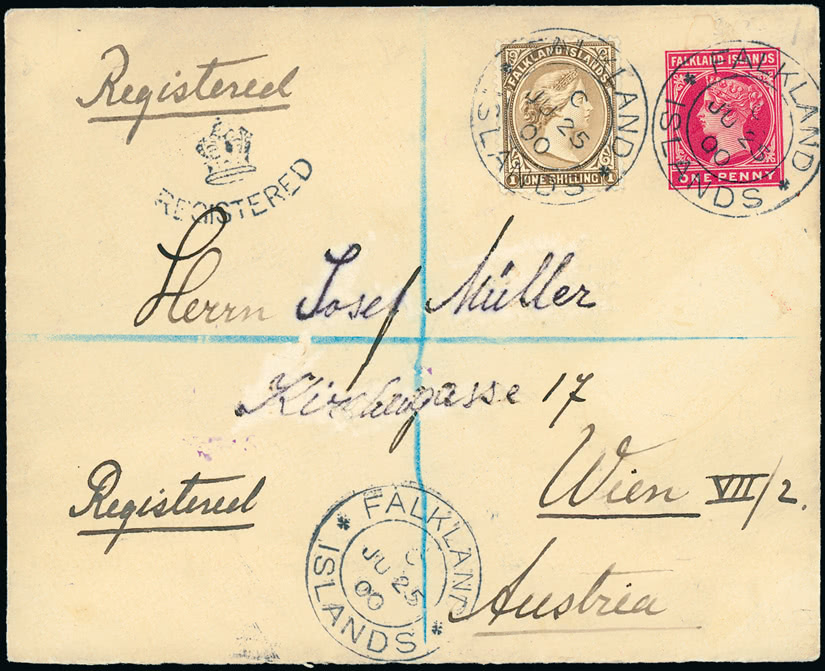 Registered
REGISTERED
FALKLAND ISLANDS
ONE SHILLING
1 1
FALKLAND ISLANDS
C
JU 25
00
FALKLAND ISLANDS
ONE PENNY
FALKLAND ISLANDS
JU 25
00
Herrn Josef Müller
Kirchengasse 17
Wien VII/2.
Austria
Registered
FALKLAND ISLANDS
C
JU 25
00